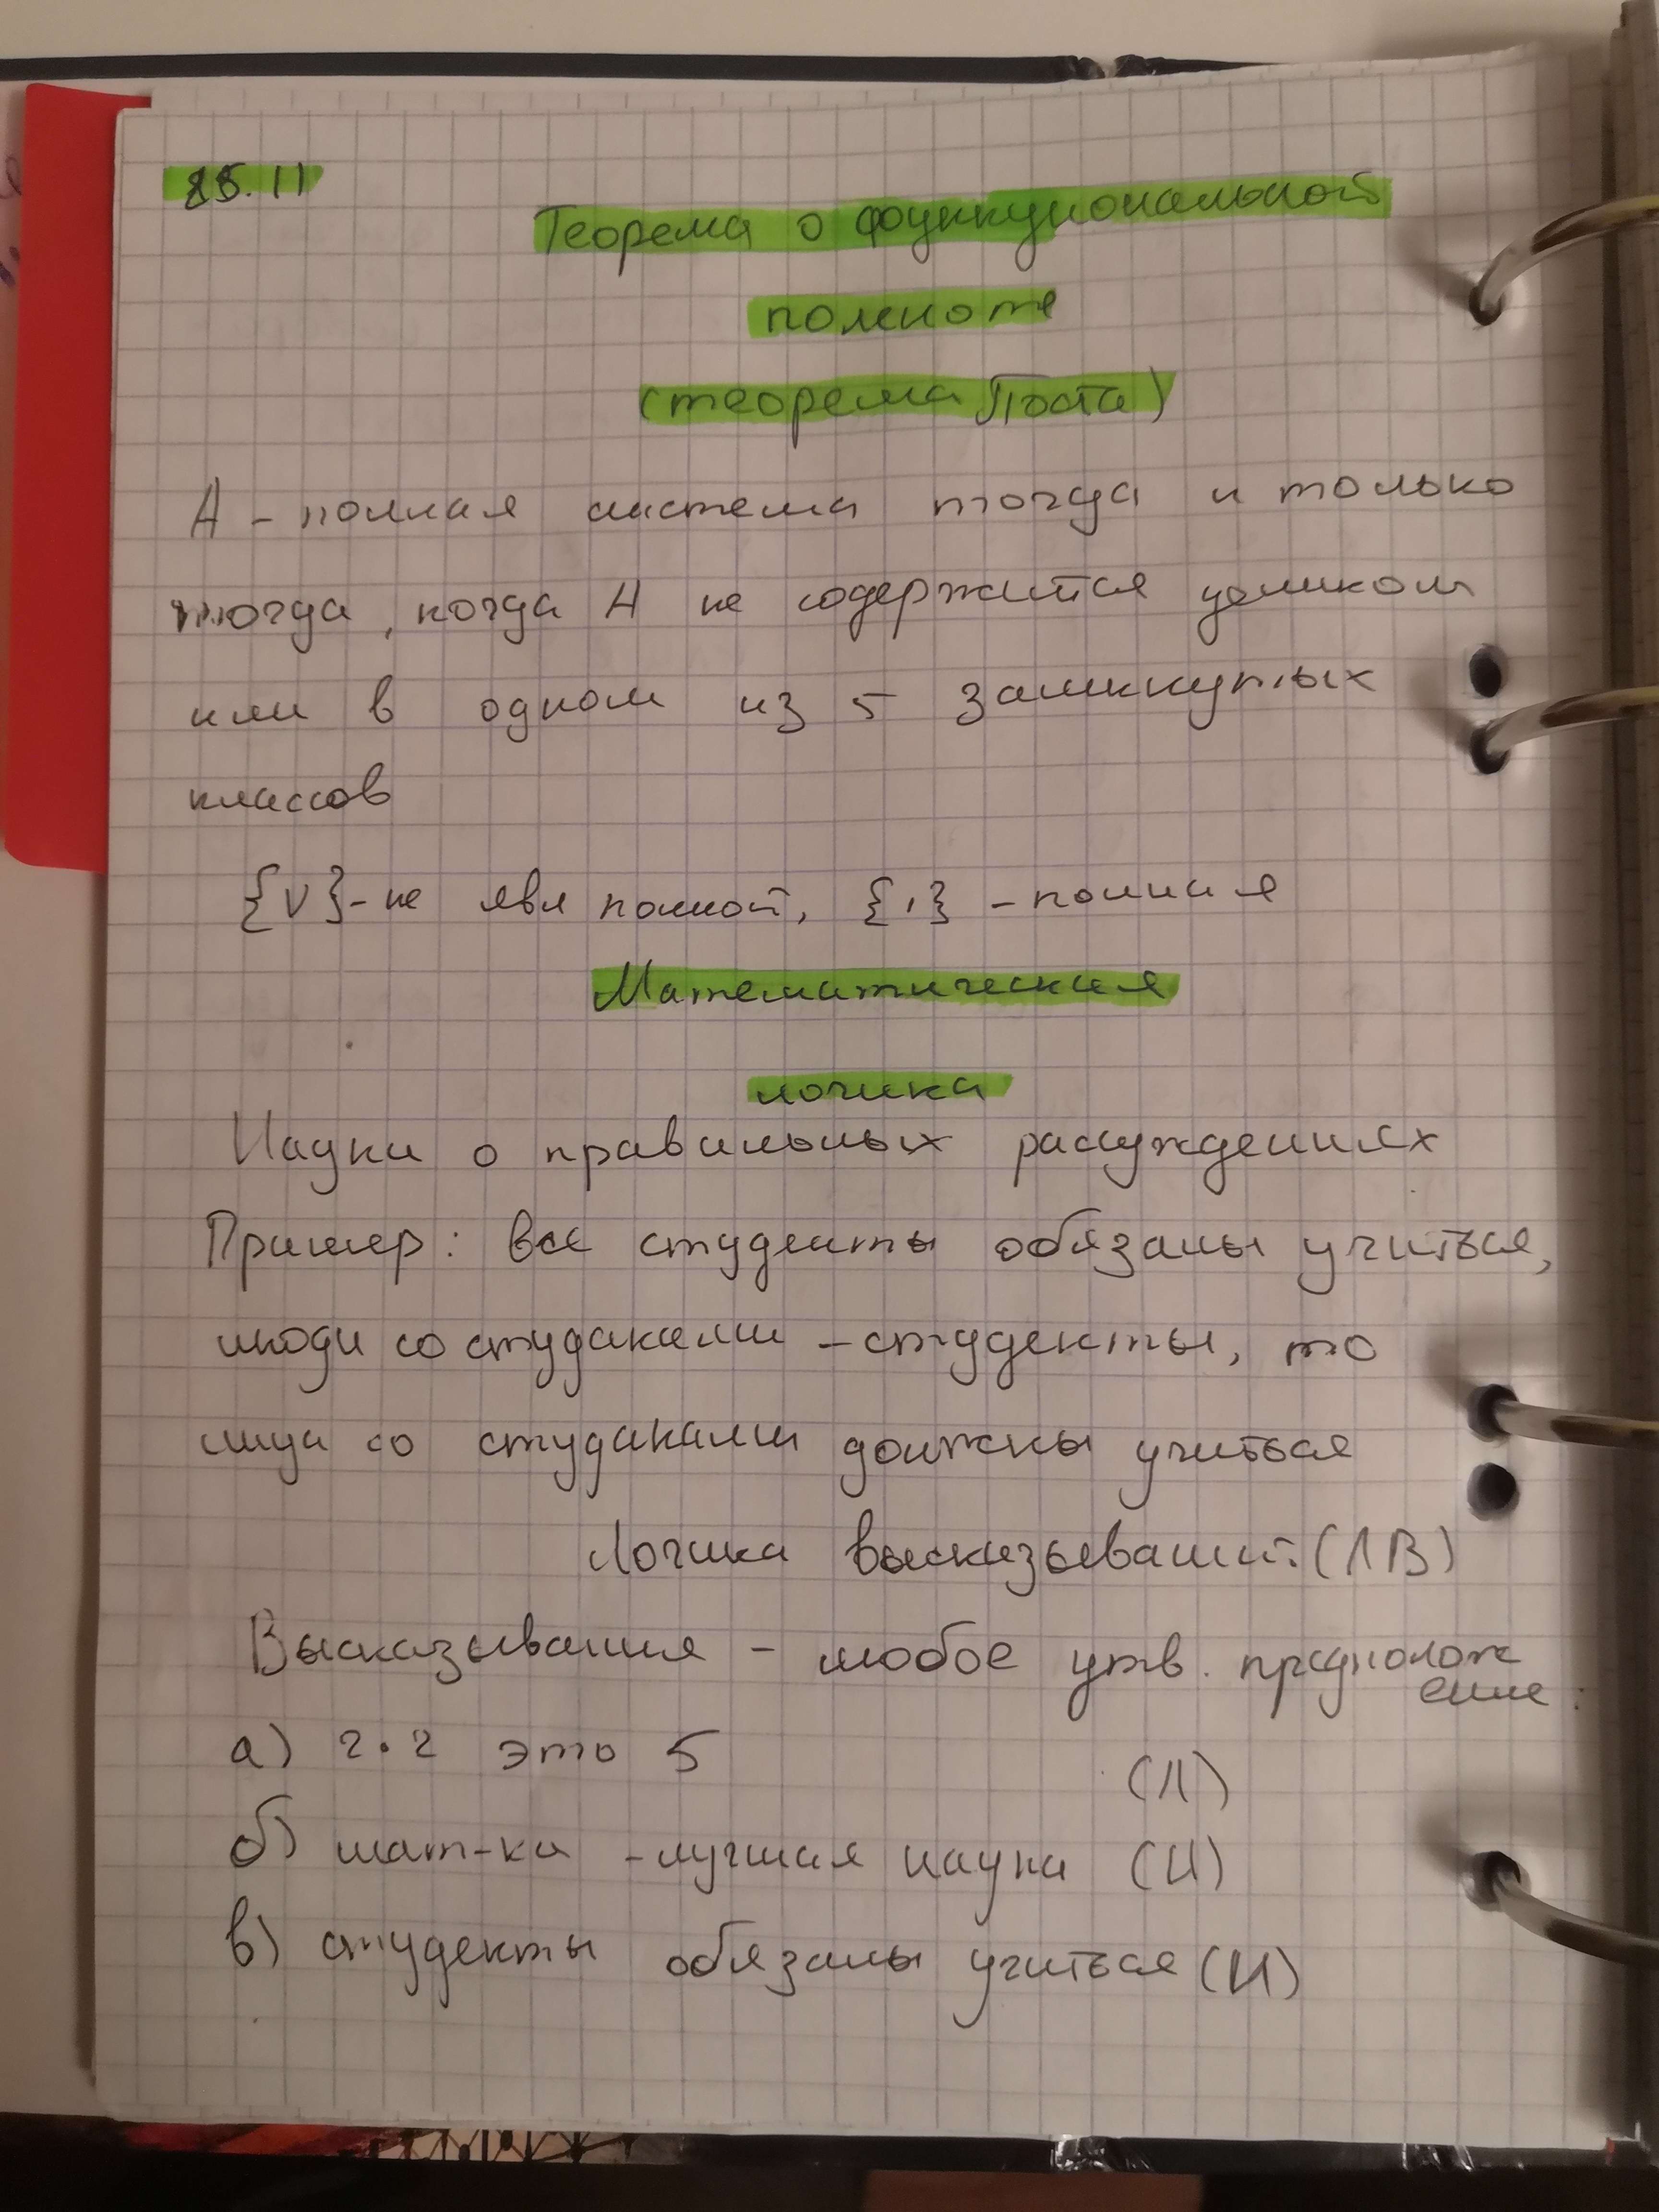 25.11
Теорема о функциональной
полноте
(теорема Поста)
А - полная система тогда и только
тогда, когда А не содержится целиком
или в одном из 5 замкнутых
классов
{V} - не явл полной, {,} - полная
Математическая
логика
Наука о правильных рассуждениях
Пример: все студенты обязаны учиться,
люди со студаками - студенты, то
лица со студаками должны учиться
Логика высказываний (ЛВ)
Высказывания - любое утв. предполож
ение:
а) 2·2 это 5 (Л)
б) мат-ка - лучшая наука (И)
в) студенты обязаны учиться (И)